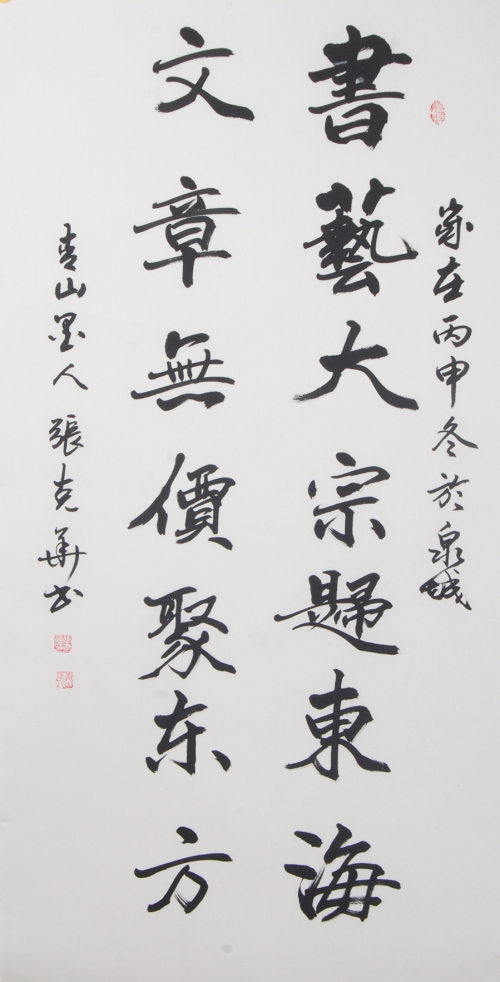 歲在丙申冬於泉城
書藝大宗歸東海
文章無價聚东方
青山墨人張克華书